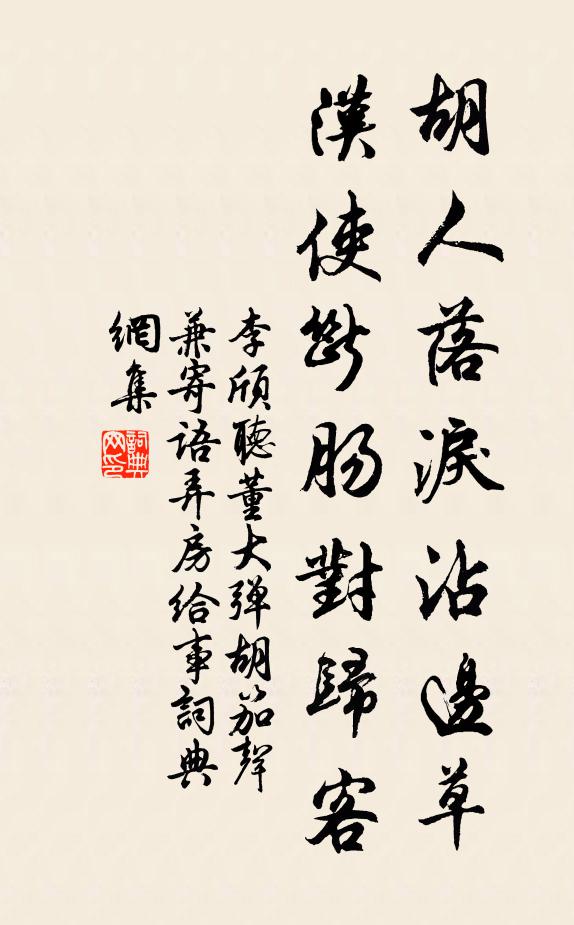 胡人落淚沾邊草
漢使斷腸對歸客
李頎聽董大彈胡笳聲
兼寄語弄房給事詞典
網集
詞典網印